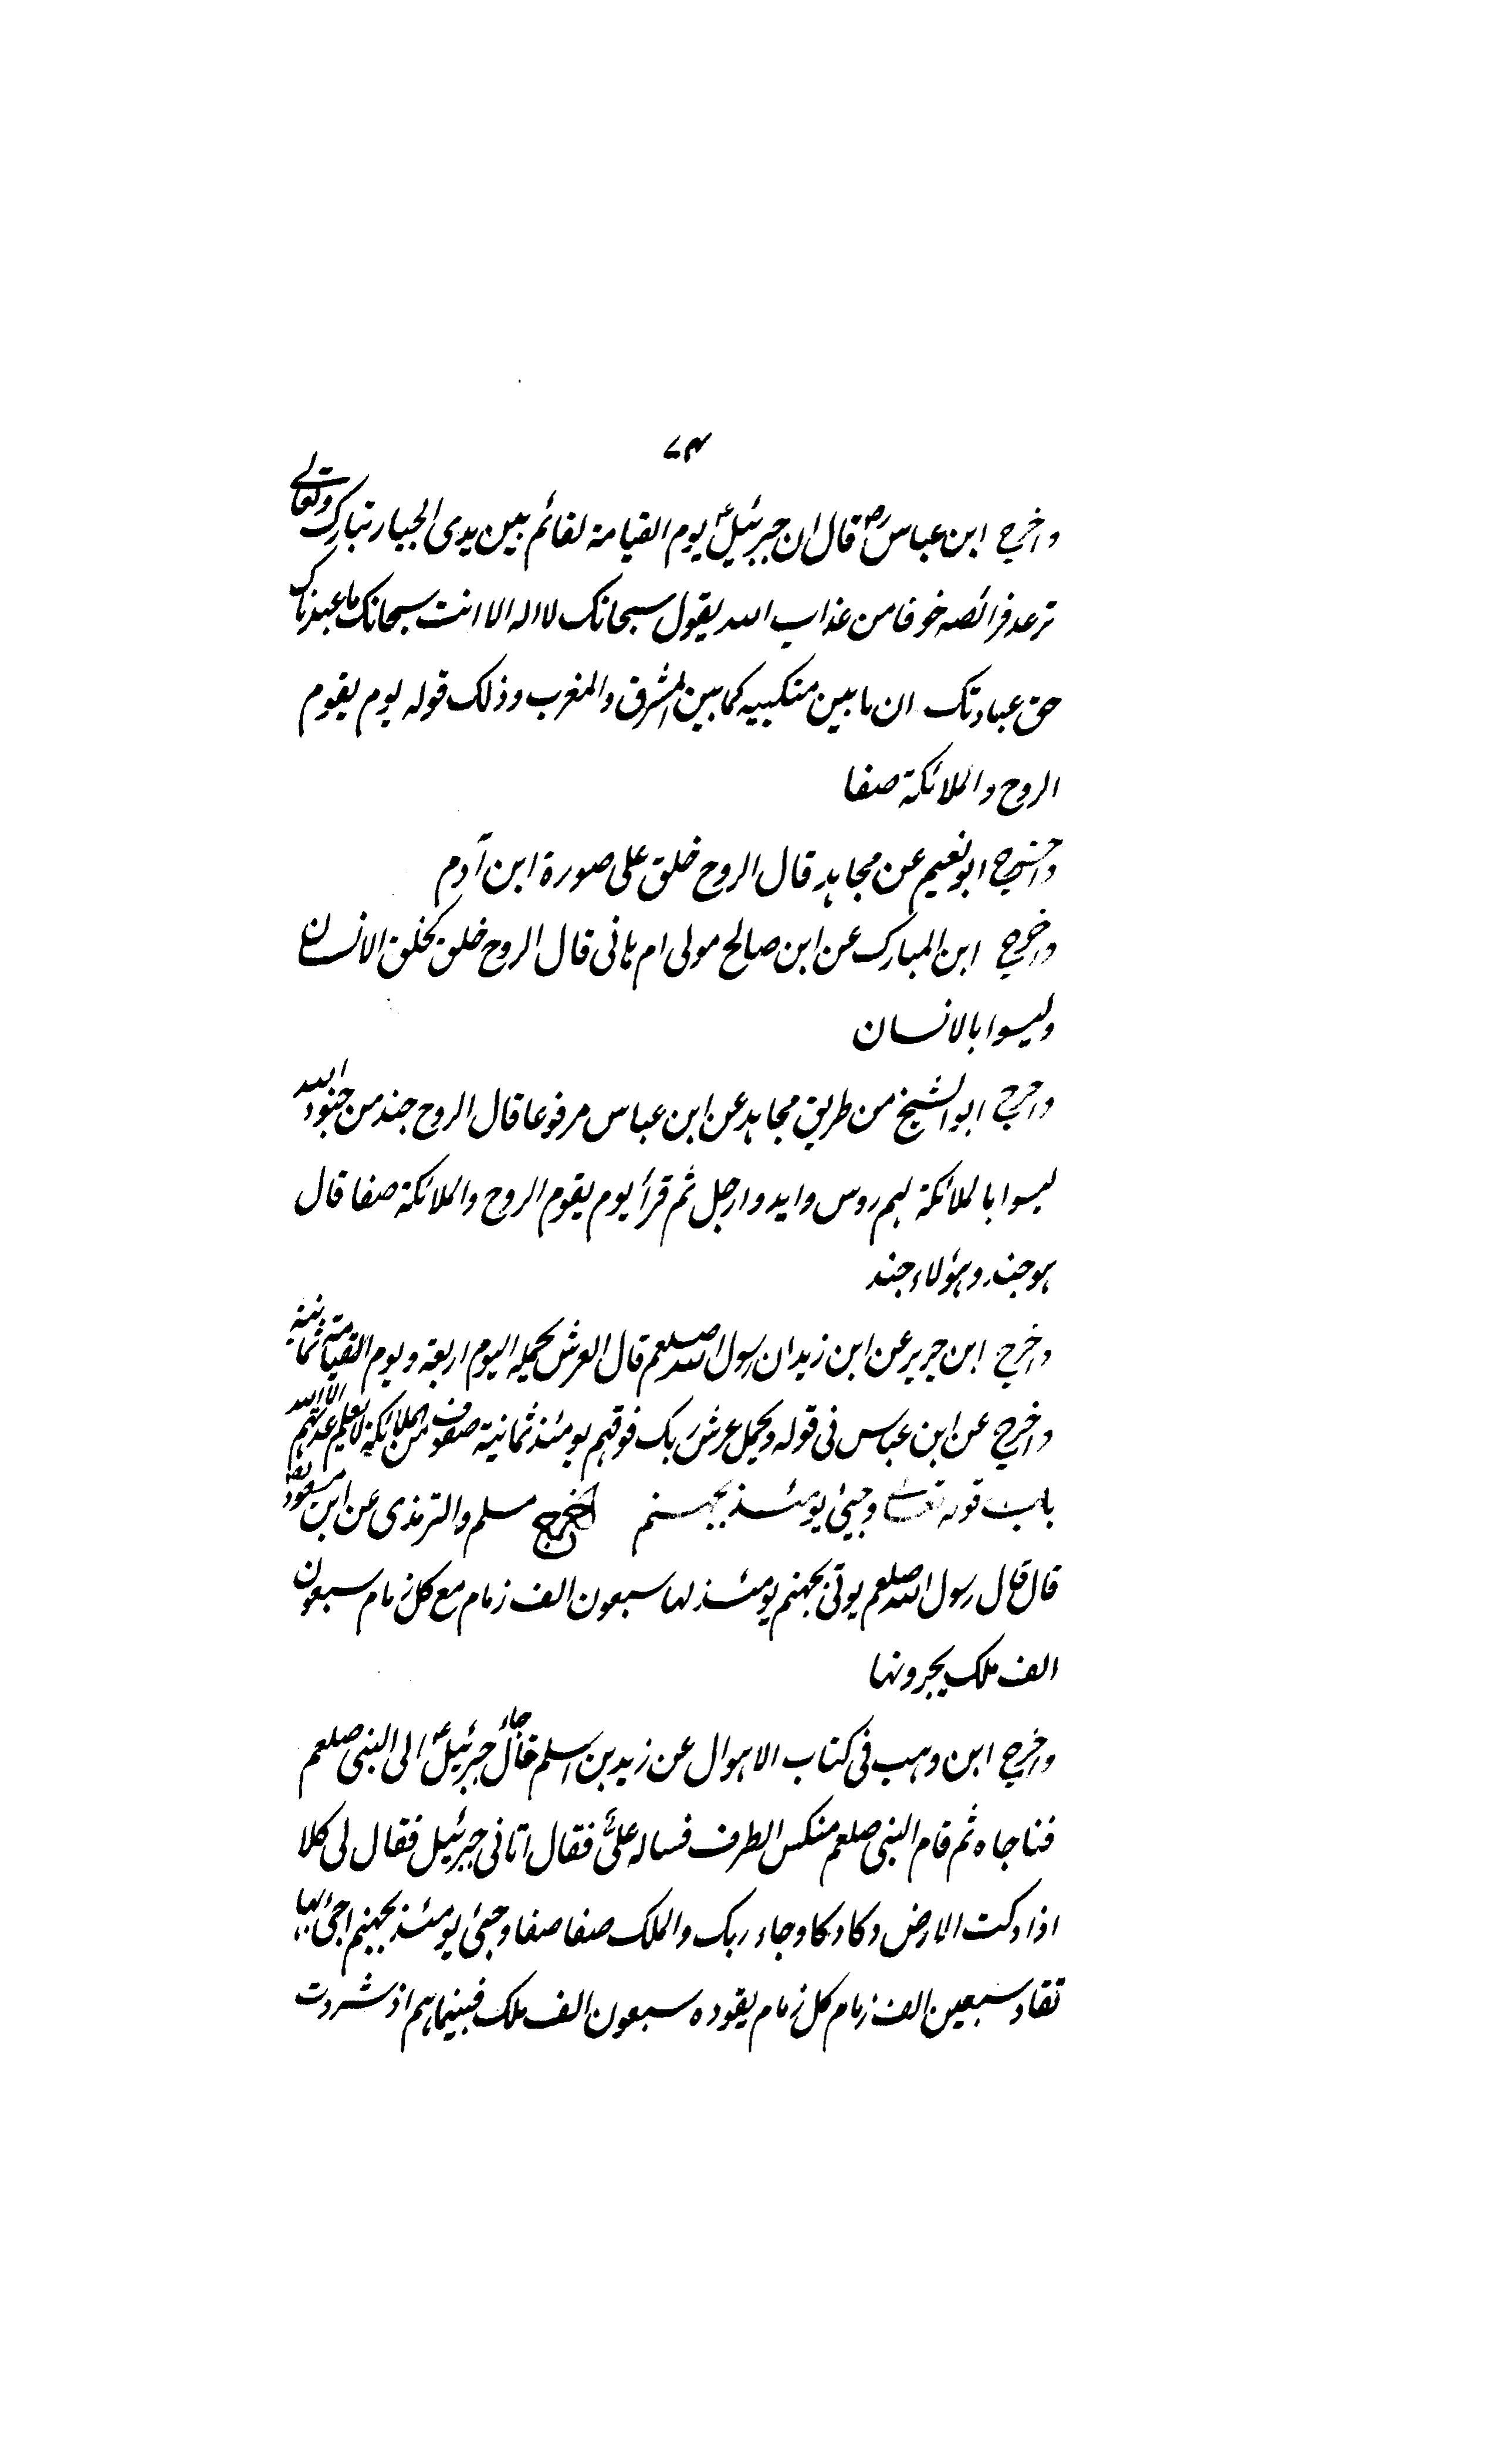 ۷۴
واخرج ابن عباس رض قال ان جبرئیل ع یوم القیامة لقائم بین یدی الجبار تبارک وتعالے
ترعد فرائصه خوفا من عذاب الله یقول سبحانک لا اله الا انت سبحانک ما عبدناک
حق عبادتک ان ما بین منکبیه کما بین المشرق والمغرب وذلک قوله یوم یقوم
الروح والملائکة صفا
واخرج ابو نعیم عن مجاہد قال الروح خلق علی صورة ابن آدم
واخرج ابن المبارک عن ابن صالح مولی ام ہانی قال الروح خلق کخلق الانسان
ولیسوا بالانسان
واخرج ابو الشیخ من طریق مجاہد عن ابن عباس مرفوعا قال الروح جند من جنود الله
لیسوا بالملائکة لہم روس واید وارجل ثم قرأ یوم یقوم الروح والملائکة صفا قال
ہو جند وہؤلاء جند
واخرج ابن جریر عن ابن زید ان رسول الله صلعم قال العرش یحمله الیوم اربعة ویوم القیامة ثمانیة
واخرج عن ابن عباس فی قوله ویحمل عرش ربک فوقہم یومئذ ثمانیة صفوف من الملائکة لا یعلم عدتہم الا الله
باب قوله تعالے وجیئ یومئذ بجہنم اخرج مسلم والترمذی عن ابن مسعود رض
قال قال رسول الله صلعم یوتی بجہنم یومئذ لہا سبعون الف زمام مع کل زمام سبعون
الف ملک یجرونہا
واخرج ابن وہب فی کتاب الاہوال عن زید بن اسلم قال جاء جبرئیل ع الی النبی صلعم
فناجاه ثم قام النبی صلعم منکس الطرف فساله علی فقال اتانی جبرئیل فقال لی کلا
اذا دکت الارض دکا دکا وجاء ربک والملک صفا صفا وجیئ یومئذ بجہنم اجیئ بہا
تقاد سبعین الف زمام کل زمام یقوده سبعون الف ملک فبینما ہم اذ شردت